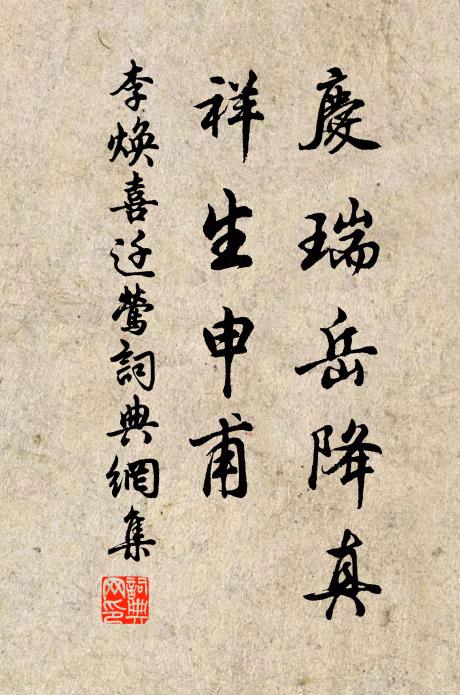 慶瑞岳降真
祥生申甫
李煥喜迁鶯詞典網集
詞典网印